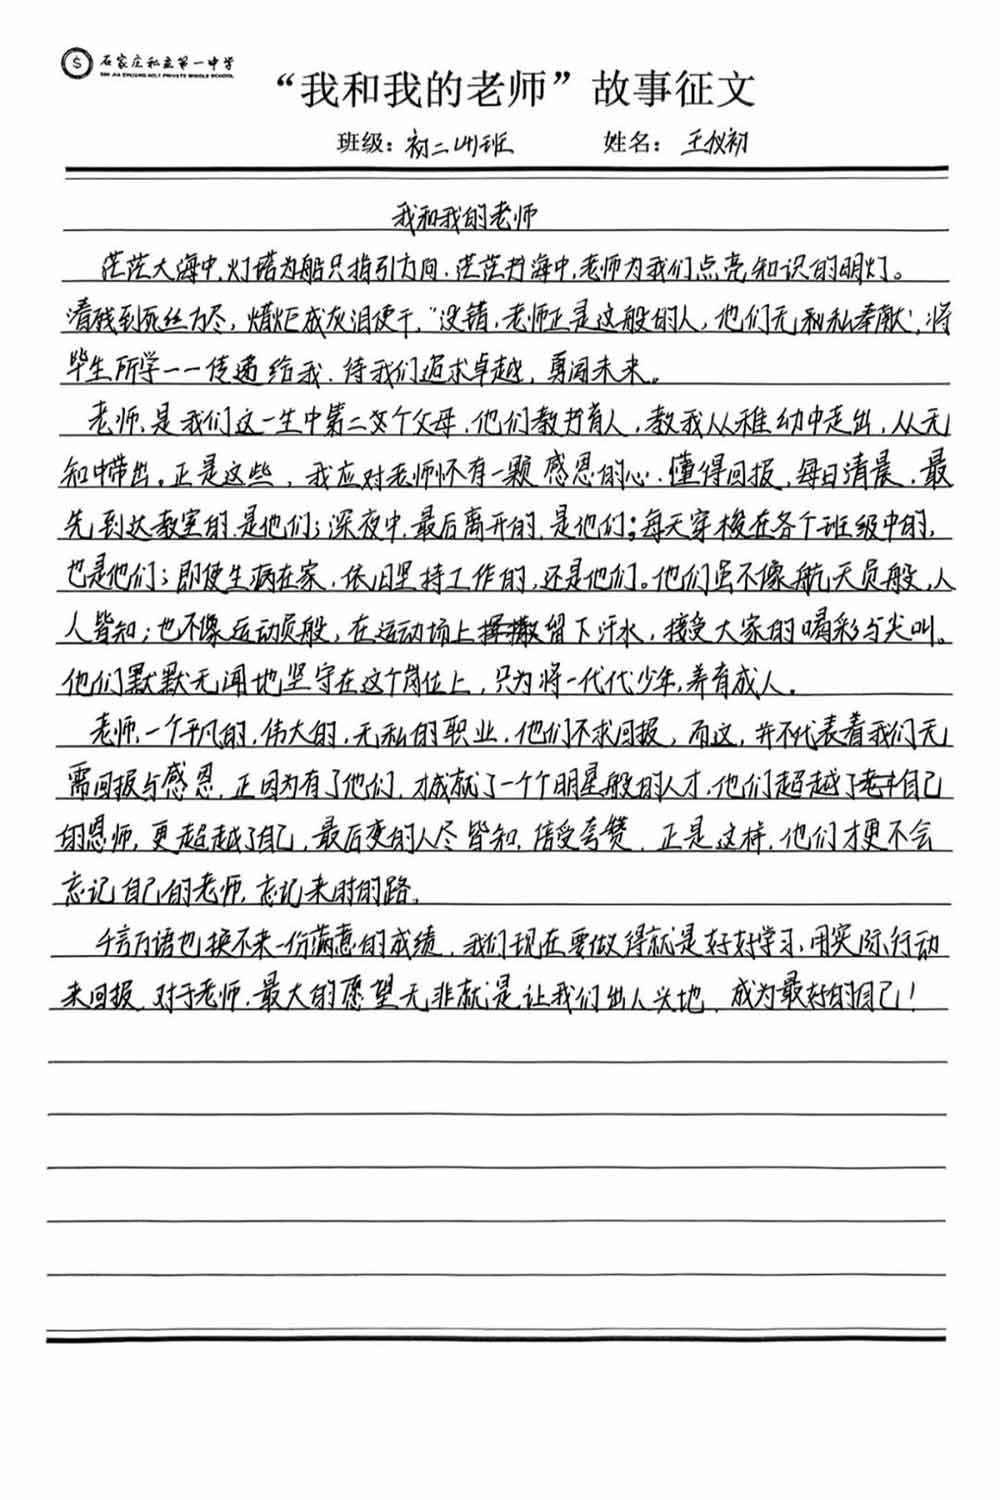 石家庄私立第一中学
SHI JIA ZHUANG NO.1 PRIVATE MIDDLE SCHOOL
“我和我的老师”故事征文
班级：初二4班 姓名：王仪初
我和我的老师
茫茫大海中,灯塔为船只指引方向.茫茫书海中,老师为我们点亮知识的明灯。
“春残到死丝方尽，熁炬成灰泪使干，”没错,老师正是这般的人，他们无私奉献，将
毕生所学一一传递给我.待我们追求卓越，勇闯未来。
老师,是我们这一生中第二个父母,他们教书育人，教我从稚幼中走出，从无
知中带出。正是这些，我应对老师怀有一颗感恩的心.懂得回报，每日清晨，最
先到达教室的.是他们；深夜中,最后离开的.是他们；每天穿梭在各个班级中的,
也是他们；即使生病在家，依旧坚持工作的,还是他们。他们虽不像航天员般,人
人皆知；也不像运动员般，在运动场上留下汗水，接受大家的喝彩与尖叫。
他们默默无闻地坚守在这个岗位上，只为将一代代少年,养育成人。
老师,一个平凡的,伟大的,无私的职业，他们不求回报，而这，并不代表着我们无
需回报与感恩，正因为有了他们，才成就了一个个明星般的人才,他们超越了自己
的恩师,更超越了自己，最后变的人尽皆知,倍受夸赞，正是这样,他们才更不会
忘记自己的老师,忘记来时的路。
千言万语也换不来一份满意的成绩，我们现在要做得就是好好学习,用实际行动
来回报.对于老师,最大的愿望无非就是让我们出人兴地，成为最好的自己！